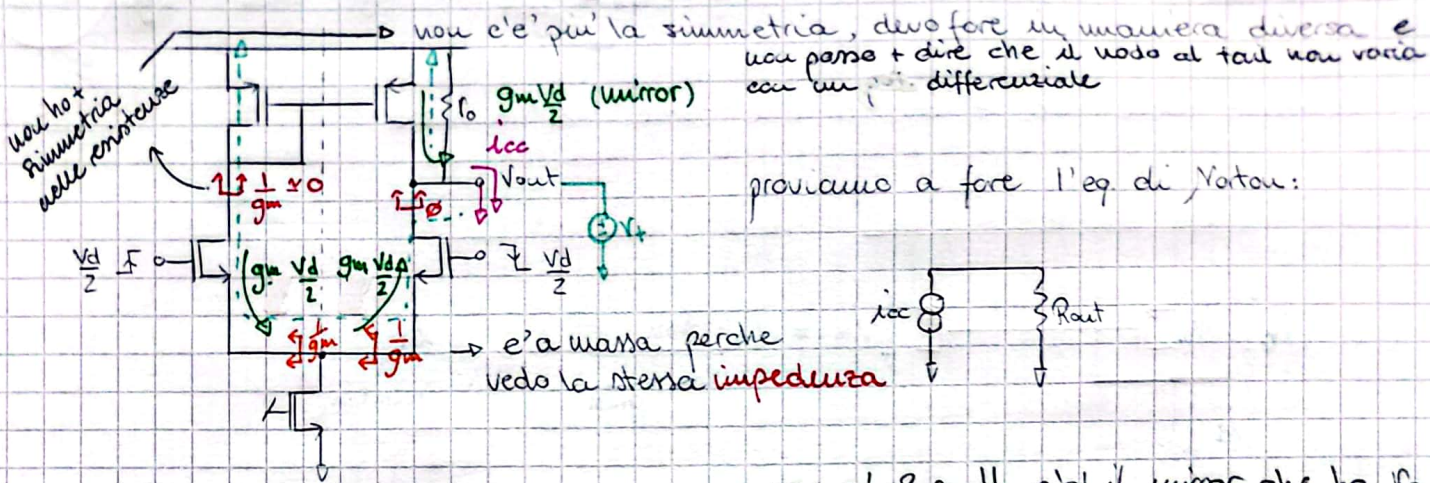 non c'e' piu' la simmetria, devo fare in maniera diversa e
non posso + dire che il nodo al tail non varia
con un differenziale
non ho +
simmetria
nelle resistenze
gm Vd/2 (mirror)
ro
icc
Vout
1/gm ≃ 0
ø
proviamo a fare l'eq. di Norton:
Vd/2
gm Vd/2
gm Vd/2
Vd/2
1/gm
1/gm
e' a massa perche
vedo la stessa impedenza
icc
Rout